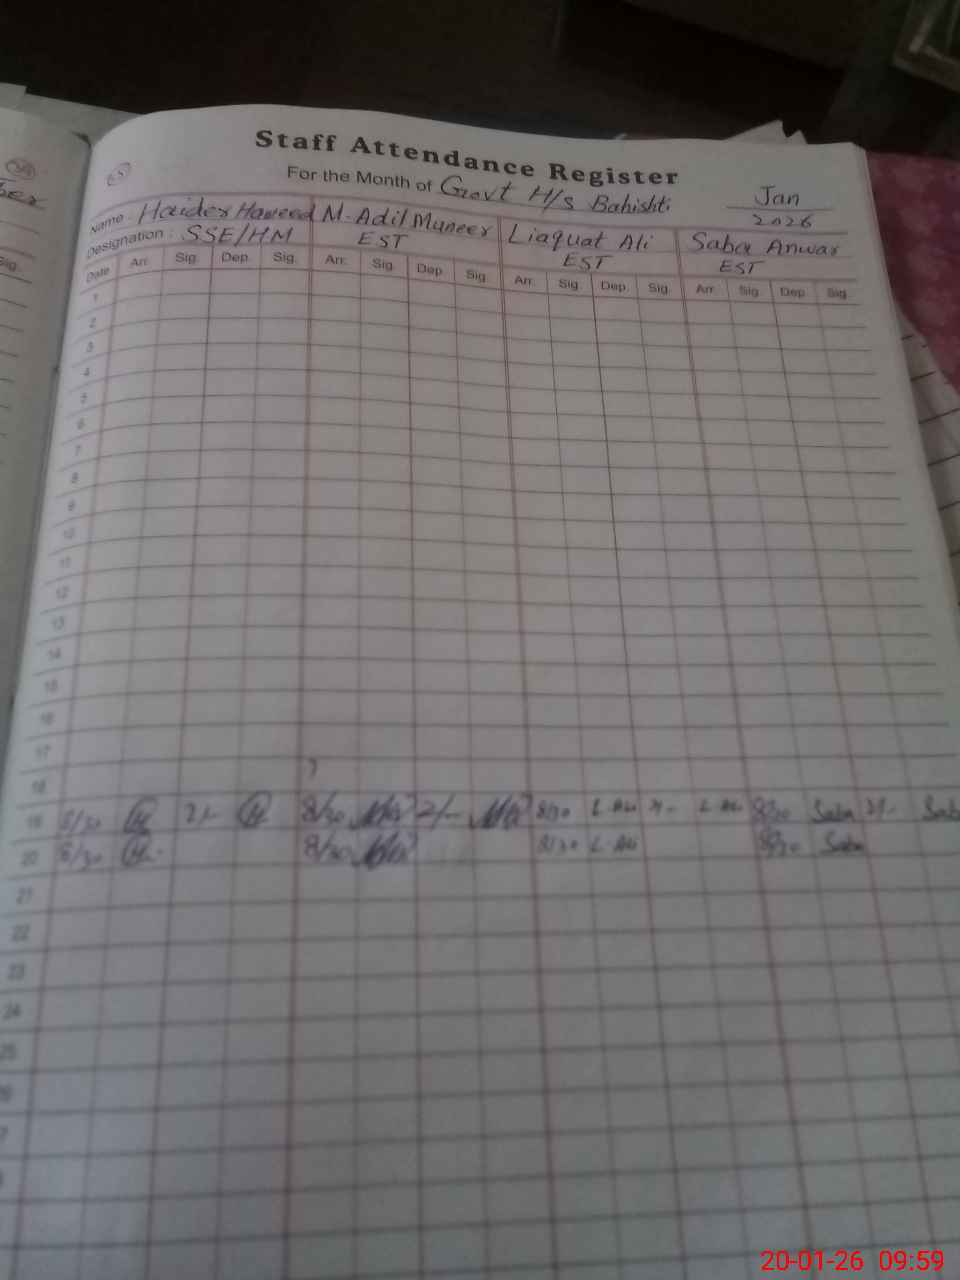 Staff Attendance Register
65
For the Month of Govt H/s Bahishti Jan
2026
Name : Haider Hameed M. Adil Muneer Liaquat Ali Saba Anwar
Designation : SSE/HM EST EST EST
Date Arr. Sig. Dep. Sig. Arr. Sig. Dep. Sig. Arr. Sig. Dep. Sig. Arr. Sig. Dep. Sig.
1
2
3
4
5
6
7
8
9
10
11
12
13
14
15
16
17
18
19 8/30 2/- 8/30 2/- 8/30 L. Ali 2/- L. Ali 8/30 Saba 2/- Sab
20 8/30 8/30 8/30 L. Ali 8/30 Saba
21
22
23
24
25
Sig.
20-01-26 09:59